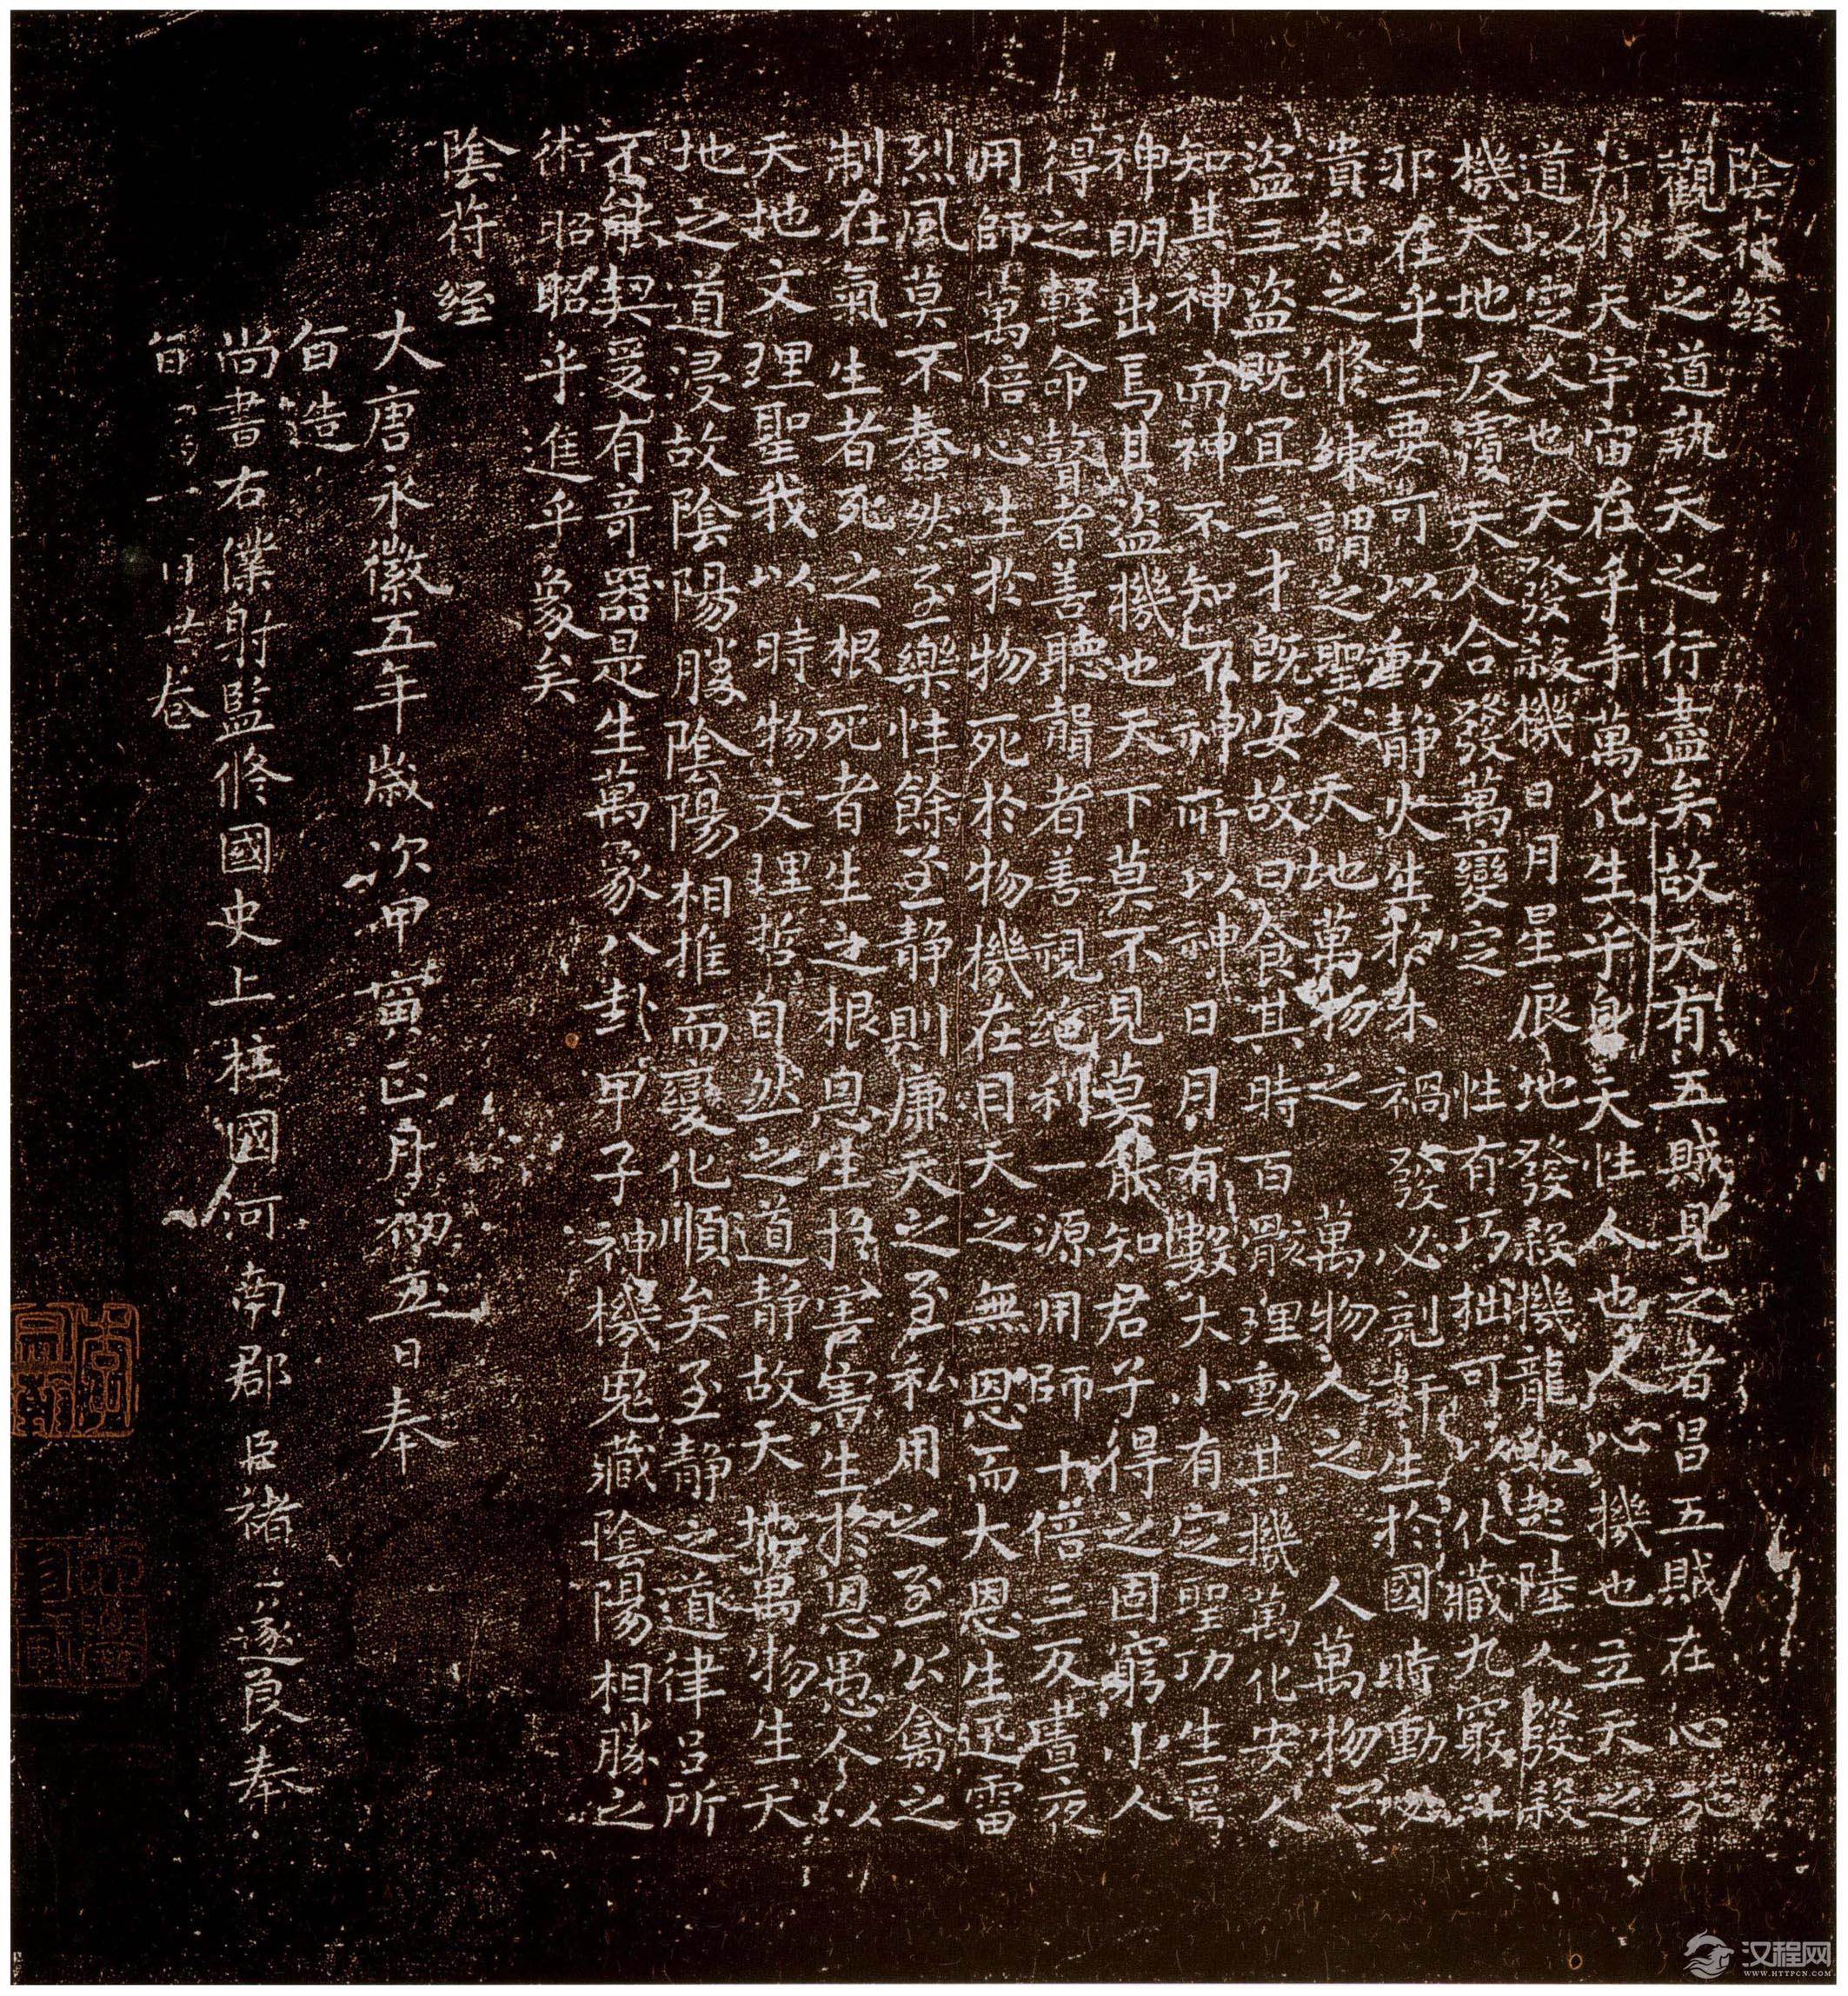 陰符經
觀天之道執天之行盡矣故天有五賊見之者昌五賊在心施
行於天宇宙在乎手萬化生乎身天性人也人心機也立天之
道以定人也天發殺機日月星辰地發殺機龍虵起陸人發殺
機天地反覆天人合發萬變定 性有巧拙可以伏藏九竅之
邪在乎三要可以動静火生於木禍發必剋姧生於國時動必
潰知之修練謂之聖人天地萬物之 萬物人之 人萬物之
盗三盗既宜三才既安故曰食其時百骸理動其機萬化安人
知其神而神不知不神所以神日月有數大小有定聖功生焉
神明出焉其盗機也天下莫不見莫能知君子得之固窮小人
得之輕命瞽者善聽聾者善視絕利一源用師十倍三反晝夜
用師萬倍心生於物死於物機在目天之無恩而大恩生迅雷
烈風莫不蠢然至樂性餘至静則廉天之至私用之至公禽之
制在氣生者死之根死者生之根恩生於害害生於恩愚人以
天地文理聖我以時物文理哲自然之道静故天地萬物生天
地之道浸故陰陽勝陰陽相推而變化順矣至静之道律吕所
不能契爰有奇器是生萬象八卦甲子神機鬼藏陰陽相勝之
術昭昭乎進乎象矣
陰符經
大唐永徽五年歲次甲寅正月初五日奉
旨造
尚書右僕射監修國史上柱國河南郡臣褚遂良奉
旨 一 卷
汉程网
WWW.HTTPCN.COM